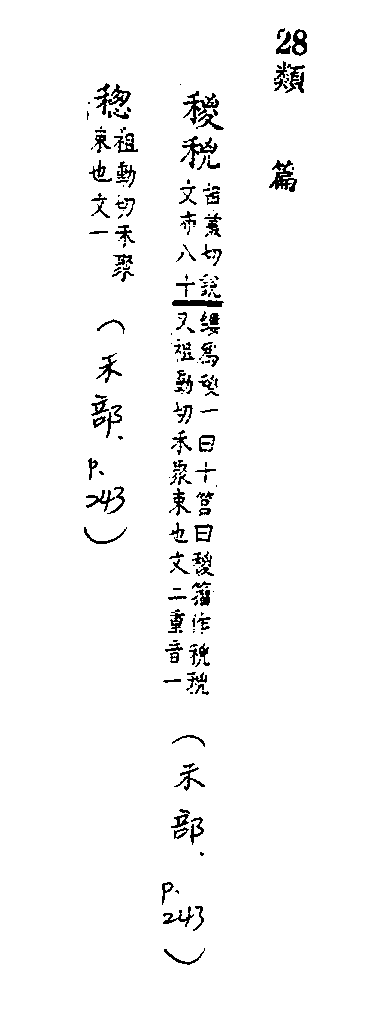 28類 篇
稯
叢切說
文布八十
縷爲稯一曰十筥曰稯籀作
又祖動切禾聚束也文二重音一
（禾部．p.243）
祖動切禾聚
束也文一
（禾部．p.243）